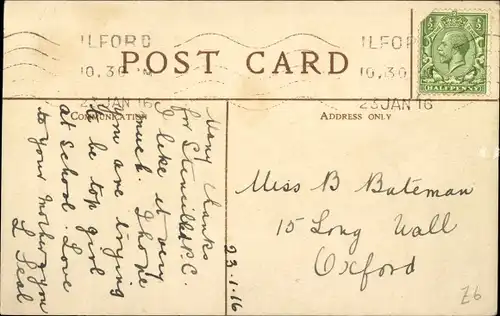 ILFORD
10.30
23 JAN 16
ILFORD
10.30
23 JAN 16
POST CARD
HALFPENNY
COMMUNICATION
ADDRESS ONLY
Many thanks
for Stencilled P.C.
I like it very
much. I hope
you are trying
to be top girl
at school. Love
to your Mother & you
L Seal
23.1.16
Miss B Bateman
15 Long Wall
Oxford
Z6